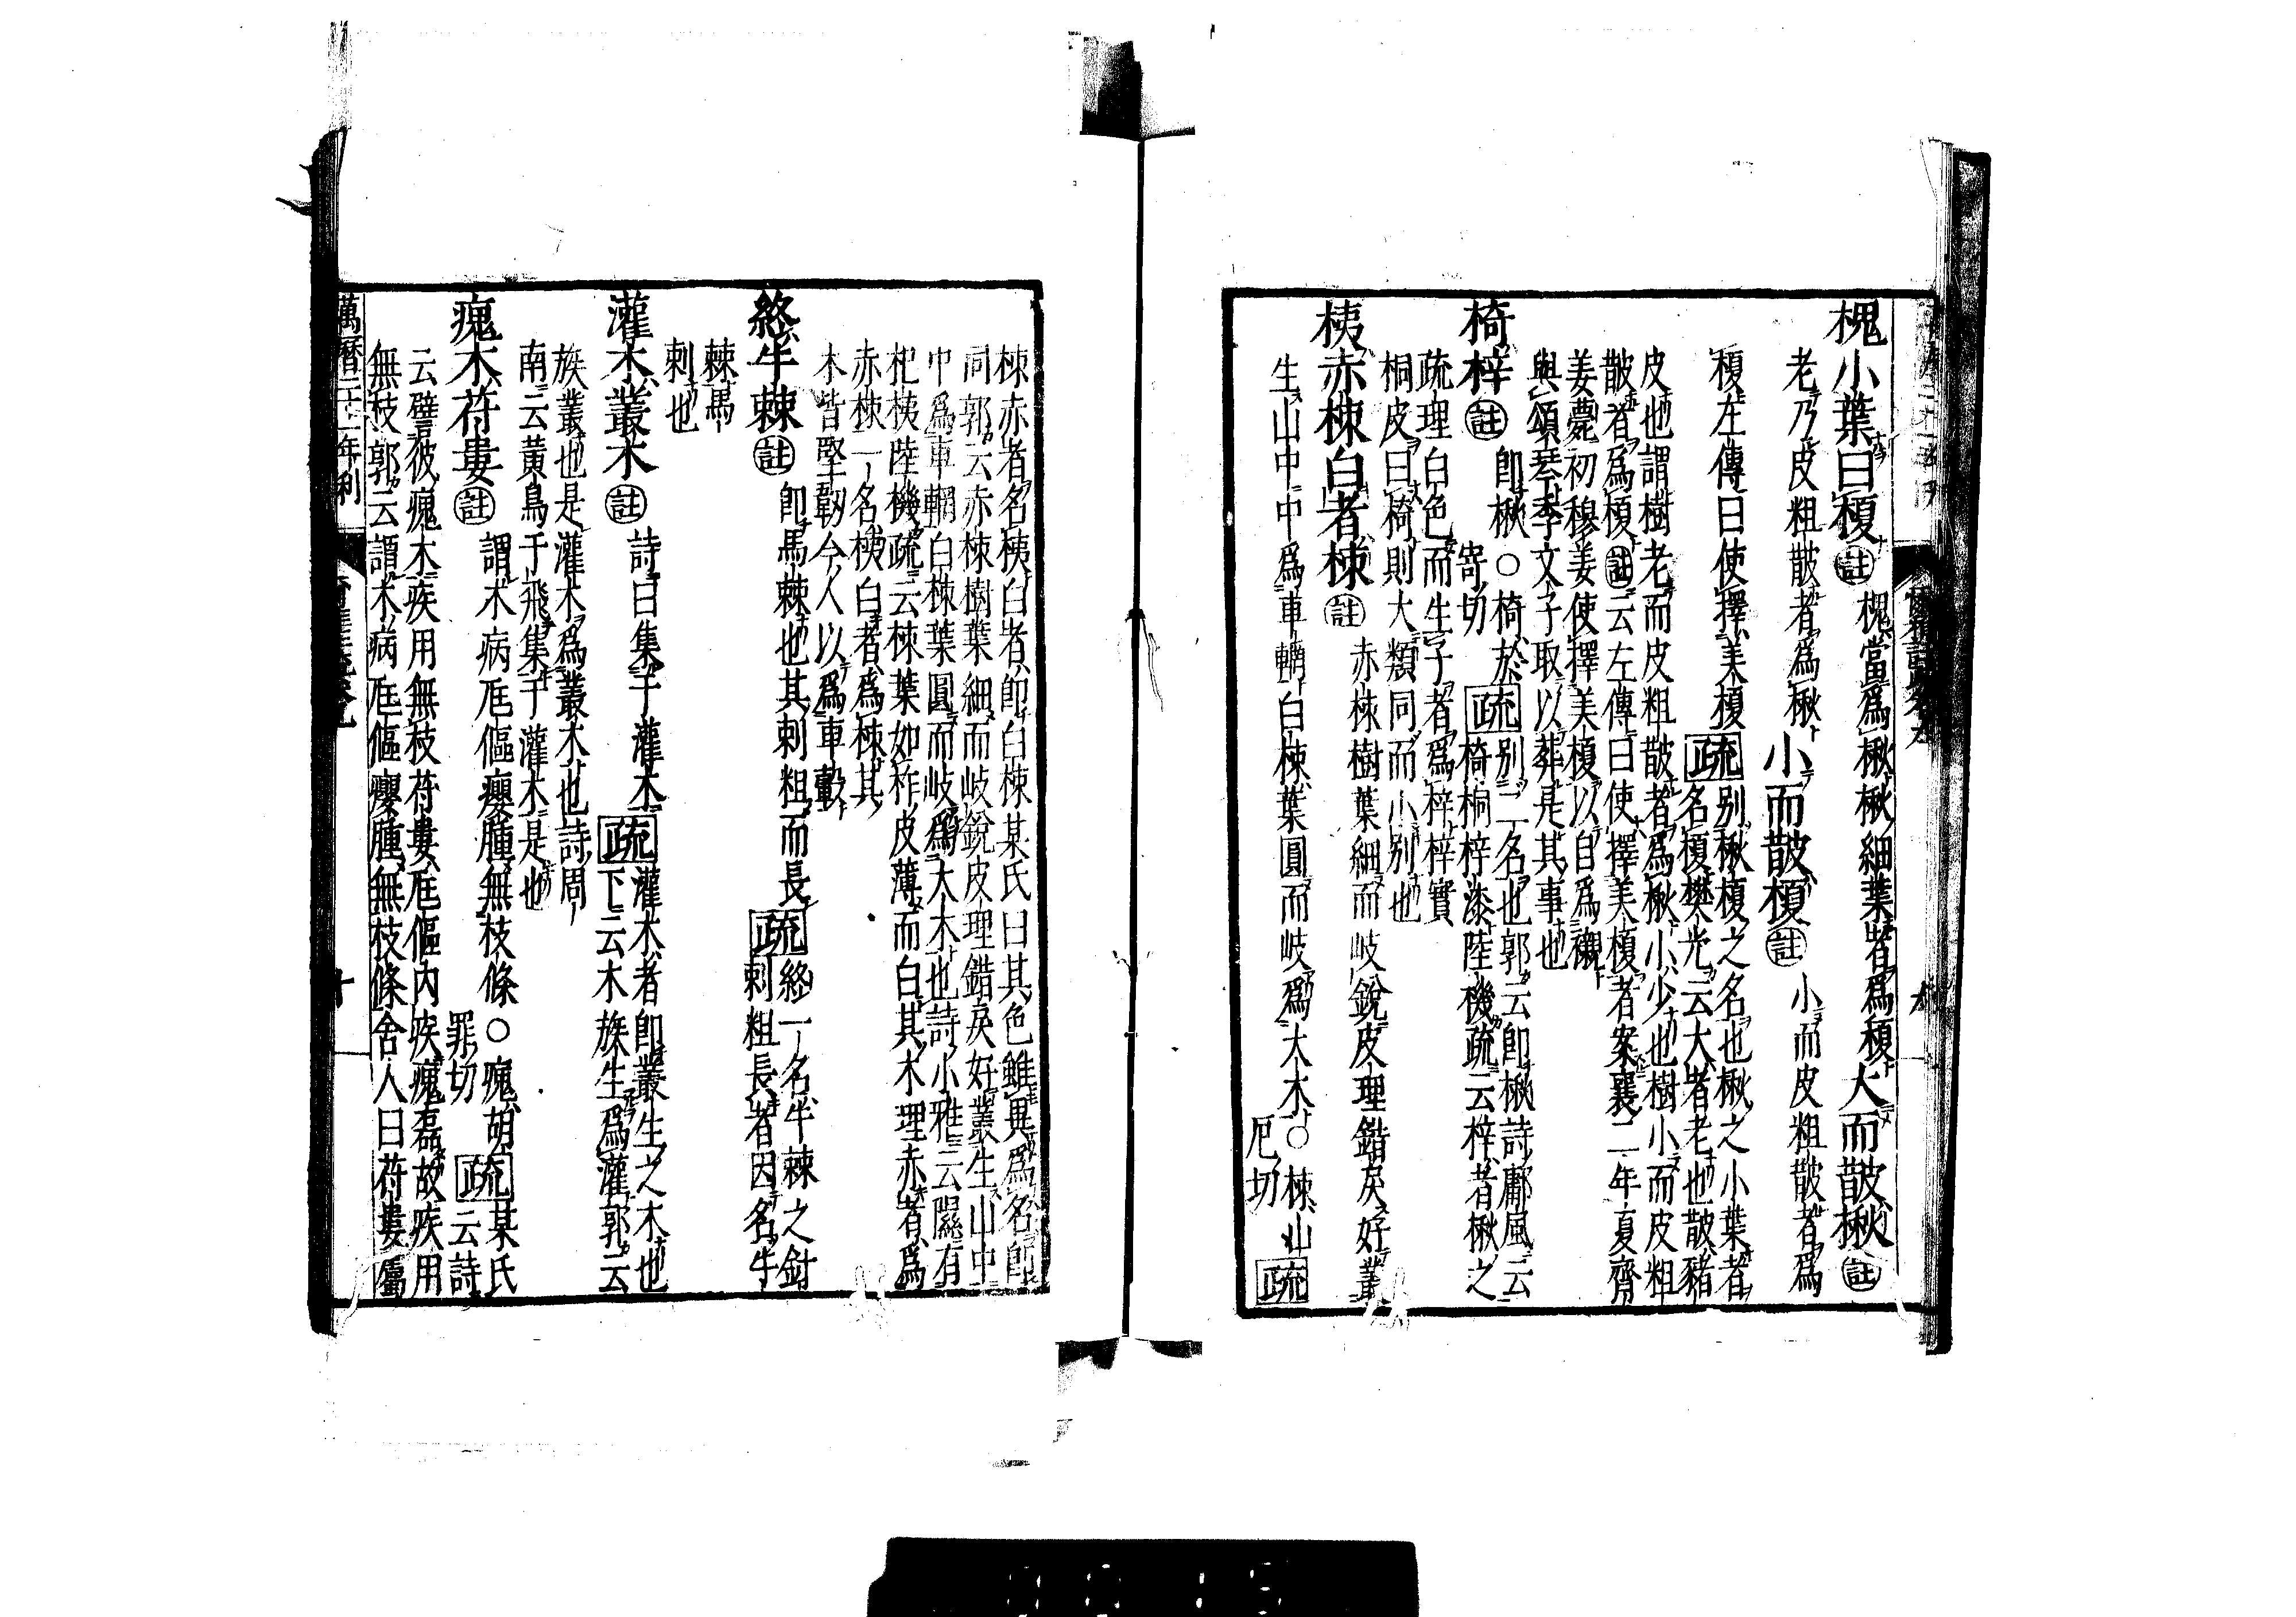 槐小葉曰榎註槐當爲楸楸細葉者爲榎大而皵楸註
老乃皮粗皵者爲楸小而皵榎註小而皮粗皵者爲
榎左傳曰使擇美榎疏別楸榎之名也楸之小葉者
名榎樊光云大者老也皵豬
皮也謂樹老而皮粗皵者爲楸小少也樹小而皮粗
皵者爲榎註云左傳曰使擇美榎者案襄二年夏齊
姜薨初穆姜使擇美榎以自爲櫬
與頌琴季文子取以葬是其事也
椅梓註即楸○椅於
寄切疏別二名也郭云即楸詩鄘風云
椅桐梓漆陸機疏云梓者楸之
疏理白色而生子者爲梓梓實
桐皮曰椅則大類同而小別也
桋赤楝白者楝註赤楝樹葉細而岐銳皮理錯戾好叢
生山中中爲車輞白楝葉圓而岐爲大木○楝山
厄切疏
楝赤者名桋白者即白楝某氏曰其色雖異爲名即
同郭云赤楝樹葉細而岐銳皮理錯戾好叢生山中
中爲車輞白楝葉圓而岐爲大木也詩小雅云隰有
杞桋陸機疏云楝葉如柞皮薄而白其木理赤者爲
赤楝一名桋白者爲楝其
木皆堅韌今人以爲車轂
終牛棘註即馬棘也其刺粗而長疏終一名牛棘之針
刺粗長者因名牛
棘馬
刺也
灌木叢木註詩曰集于灌木疏灌木者即叢生之木也
下云木族生爲灌郭云
族叢也是灌木爲叢木也詩周
南云黃鳥于飛集于灌木是也
瘣木苻婁註謂木病尪傴癭腫無枝條○瘣胡
罪切疏某氏
云詩
云譬彼瘣木疾用無枝苻婁尪傴內疾瘣磊故疾用
無枝郭云謂木病尪傴癭腫無枝條舍人曰苻婁屬
萬曆二十一年刊
十